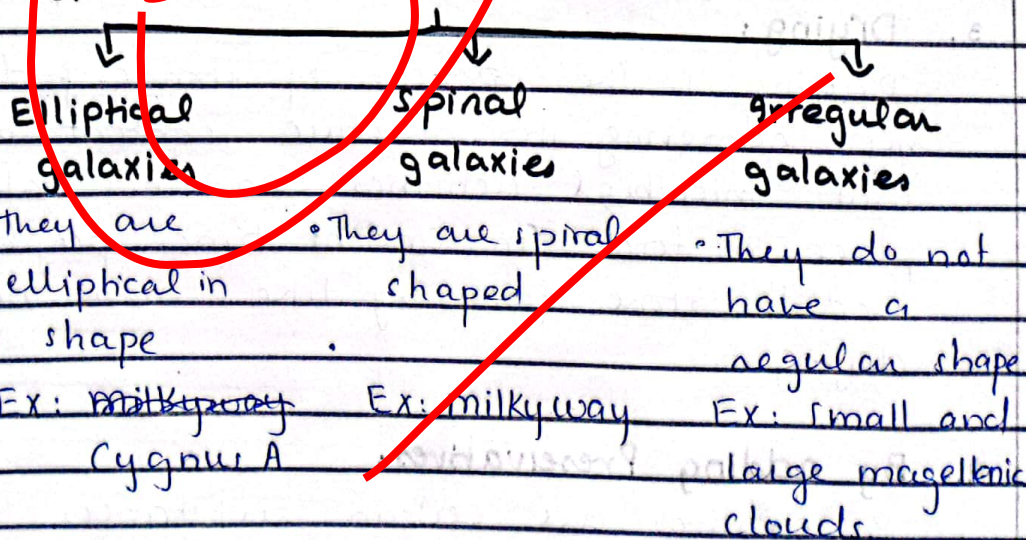 Elliptical
galaxies
They are
elliptical in
shape
Ex: milkyway
Cygnus A
Spiral
galaxies
• They are spiral
shaped
•
Ex: milkyway
Irregular
galaxies
• They do not
have a
regular shape
Ex: Small and
large magellenic
clouds.